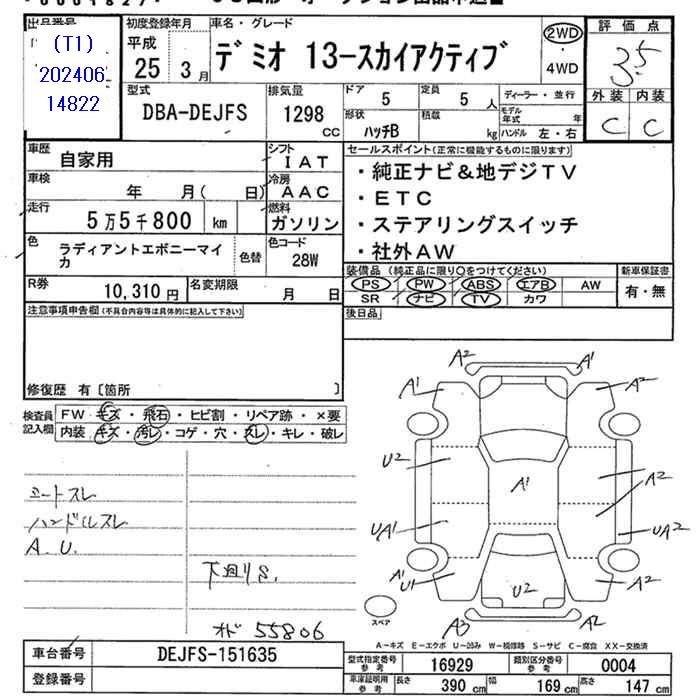 出品番号
(T1)
202406
14822
初度登録年月
平成
25 3月
車名・グレード
デミオ 13-スカイアクティブ
2WD
・
4WD
評価点
3.5
外装 内装
C C
型式
DBA-DEJFS
排気量
1298
CC
ドア
5
定員
5人
ディーラー・並行
形状
ハッチB
積載
kg
モデル年式 年
ハンドル 左・右
車歴
自家用
シフト
IAT
車検
年 月( 日)
冷房
AAC
走行
5万5千800 km
燃料
ガソリン
色
ラディアントエボニーマイカ
色替
色コード
28W
R券
10,310円
名変期限
月 日
セールスポイント(正常に機能するものに限ります)
・純正ナビ&地デジTV
・ETC
・ステアリングスイッチ
・社外AW
装備品(純正品に限り○をつけてください)
PS PW ABS エアB AW
SR ナビ TV カワ
新車保証書
有・無
後日品
注意事項申告欄(不具合内容等は具体的に記入して下さい)
修復歴 有[箇所 ]
検査員
記入欄
FW キズ・飛石・ヒビ割・リペア跡・×要
内装 キズ・汚レ・コゲ・穴・スレ・キレ・破レ
シートスレ
ハンドルスレ
A.U.
下廻りS.
オド 55806
A2
A1
A1
A2
U2
A1
A2
UA1
UA2
A1
U1
U2
A2
A3
A2
スペア
A-キズ E-エクボ U-凹み W-補修跡 S-サビ C-腐食 XX-交換済
車台番号
DEJFS-151635
登録番号
型式指定番号
参考
16929
類別区分番号
参考
0004
車庫証明用
参考
長さ
390 cm
幅
169 cm
高さ
147 cm